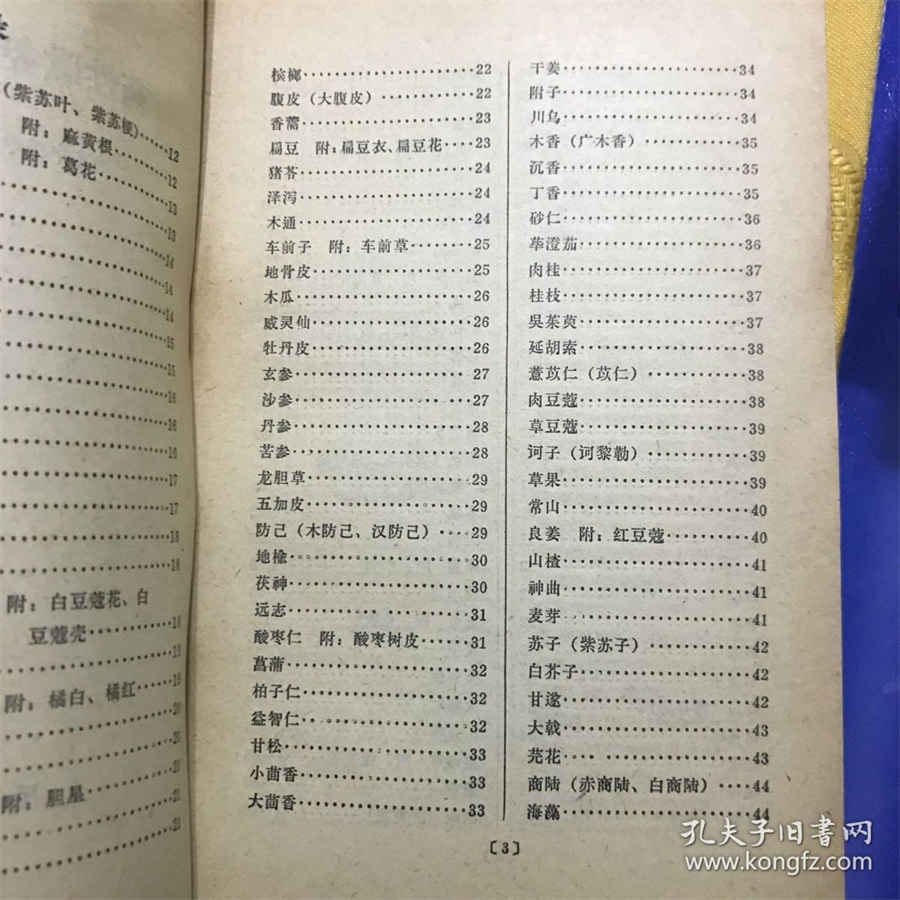 （紫苏叶、紫苏梗）……12
附：麻黄根……12
附：葛花……13
13
14
14
14
15
15
16
16
16
17
17
18
18
附：白豆蔻花、白
豆蔻壳……18
19
附：橘白、橘红……19
20
附：胆星……21
槟榔……22
腹皮（大腹皮）……22
香薷……23
扁豆 附：扁豆衣、扁豆花……23
猪苓……24
泽泻……24
木通……24
车前子 附：车前草……25
地骨皮……25
木瓜……26
威灵仙……26
牡丹皮……26
玄参……27
沙参……27
丹参……28
苦参……28
龙胆草……29
五加皮……29
防己（木防己、汉防己）……29
地榆……30
茯神……30
远志……31
酸枣仁 附：酸枣树皮……31
菖蒲……32
柏子仁……32
益智仁……32
甘松……33
小茴香……33
大茴香……33
干姜……34
附子……34
川乌……34
木香（广木香）……35
沉香……35
丁香……35
砂仁……36
荜澄茄……36
肉桂……37
桂枝……37
吳茱萸……37
延胡索……38
薏苡仁（苡仁）……38
肉豆蔻……38
草豆蔻……39
诃子（诃黎勒）……39
草果……39
常山……40
良姜 附：红豆蔻……40
山楂……41
神曲……41
麦芽……41
苏子（紫苏子）……42
白芥子……42
甘遂……42
大戟……43
芫花……43
商陆（赤商陆、白商陆）……44
海藻……44
〔3〕
孔夫子旧书网
www.kongfz.com